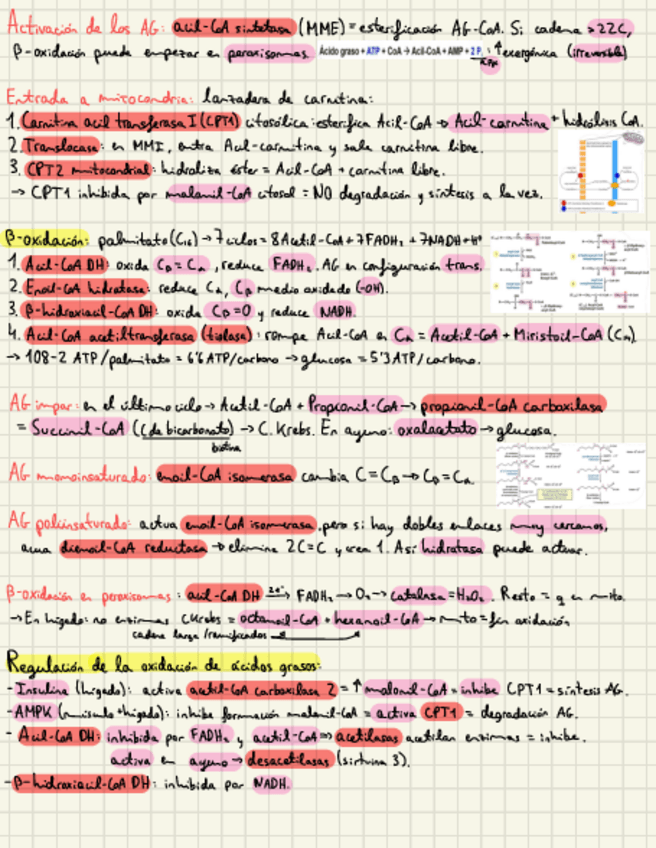 Activación de los AG: acil-CoA sintetasa (MME) = esterificación AG-CoA. Si cadena >22C,
β-oxidación puede empezar en peroxisomas. Ácido graso + ATP + CoA → Acil-CoA + AMP + 2 Pi ↑exergónica (irreversible)
Entrada a mitocondria: lanzadera de carnitina:
1. Carnitina acil transferasa I (CPT1) citosólica: esterifica Acil-CoA → Acil-carnitina + hidrólisis CoA.
2. Translocasa: en MMI, entra Acil-carnitina y sale carnitina libre.
3. CPT2 mitocondrial: hidroliza éster = Acil-CoA + carnitina libre.
→ CPT1 inhibida por malonil-CoA citosol = NO degradación y síntesis a la vez.
β-oxidación: palmitato (C16) → 7 ciclos = 8 Acetil-CoA + 7 FADH2 + 7 NADH + H+
1. Acil-CoA DH: oxida Cβ = Cα, reduce FADH2. AG en configuración trans.
2. Enoil-CoA hidratasa: reduce Cα, Cβ medio oxidado (-OH).
3. β-hidroxiacil-CoA DH: oxida Cβ=O y reduce NADH.
4. Acil-CoA acetiltransferasa (tiolasa): rompe Acil-CoA en Cα = Acetil-CoA + Miristoil-CoA (C14)
→ 108-2 ATP/palmitato = 6'6 ATP/carbono → glucosa = 5'3 ATP/carbono.
AG impar: en el último ciclo → Acetil-CoA + Propionil-CoA → propionil-CoA carboxilasa
= Succinil-CoA (C de bicarbonato) → C. Krebs. En ayuno: oxalacetato → glucosa.
biotina
AG monoinsaturado: enoil-CoA isomerasa cambia C=Cβ → Cβ=Cα.
AG poliinsaturado: actua enoil-CoA isomerasa, pero si hay dobles enlaces muy cercanos,
actua dienoil-CoA reductasa → elimina 2C=C y crea 1. Así hidratasa puede actuar.
β-oxidación en peroxisomas: acil-CoA DH 2e- → FADH2 → O2 → catalasa = H2O2. Resto = q en mito.
→ En hígado: no enzimas CKrebs = octanoil-CoA + hexanoil-CoA → mito = fin oxidación
cadena larga/ramificados
Regulación de la oxidación de ácidos grasos:
- Insulina (hígado): activa acetil-CoA carboxilasa 2 = ↑ malonil-CoA = inhibe CPT1 = síntesis AG.
- AMPK (músculo + hígado): inhibe formación malonil-CoA = activa CPT1 = degradación AG.
- Acil-CoA DH: inhibida por FADH2 y acetil-CoA ⇒ acetilasas acetilan enzimas = inhibe.
activa en ayuno → desacetilasas (sirtuina 3).
- β-hidroxiacil-CoA DH: inhibida por NADH.